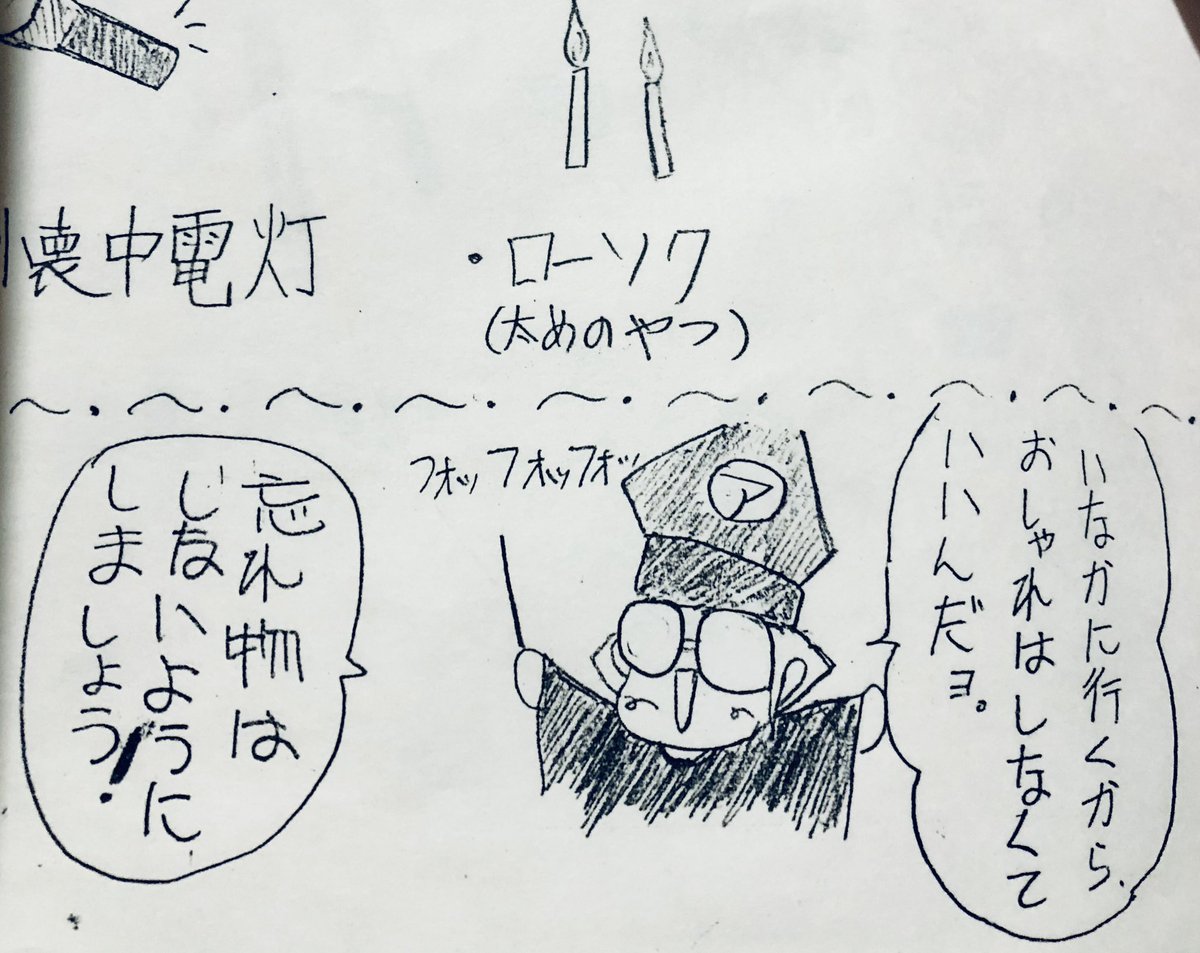 懐中電灯
・ローソク
(太めのやつ)
～・～・～・～・～・～・～・～・～・
いなかに行くから、
おしゃれはしなくて
いいんだヨ。
フォッフォッフォッ
ア
忘れ物は
しないように
しましょう!